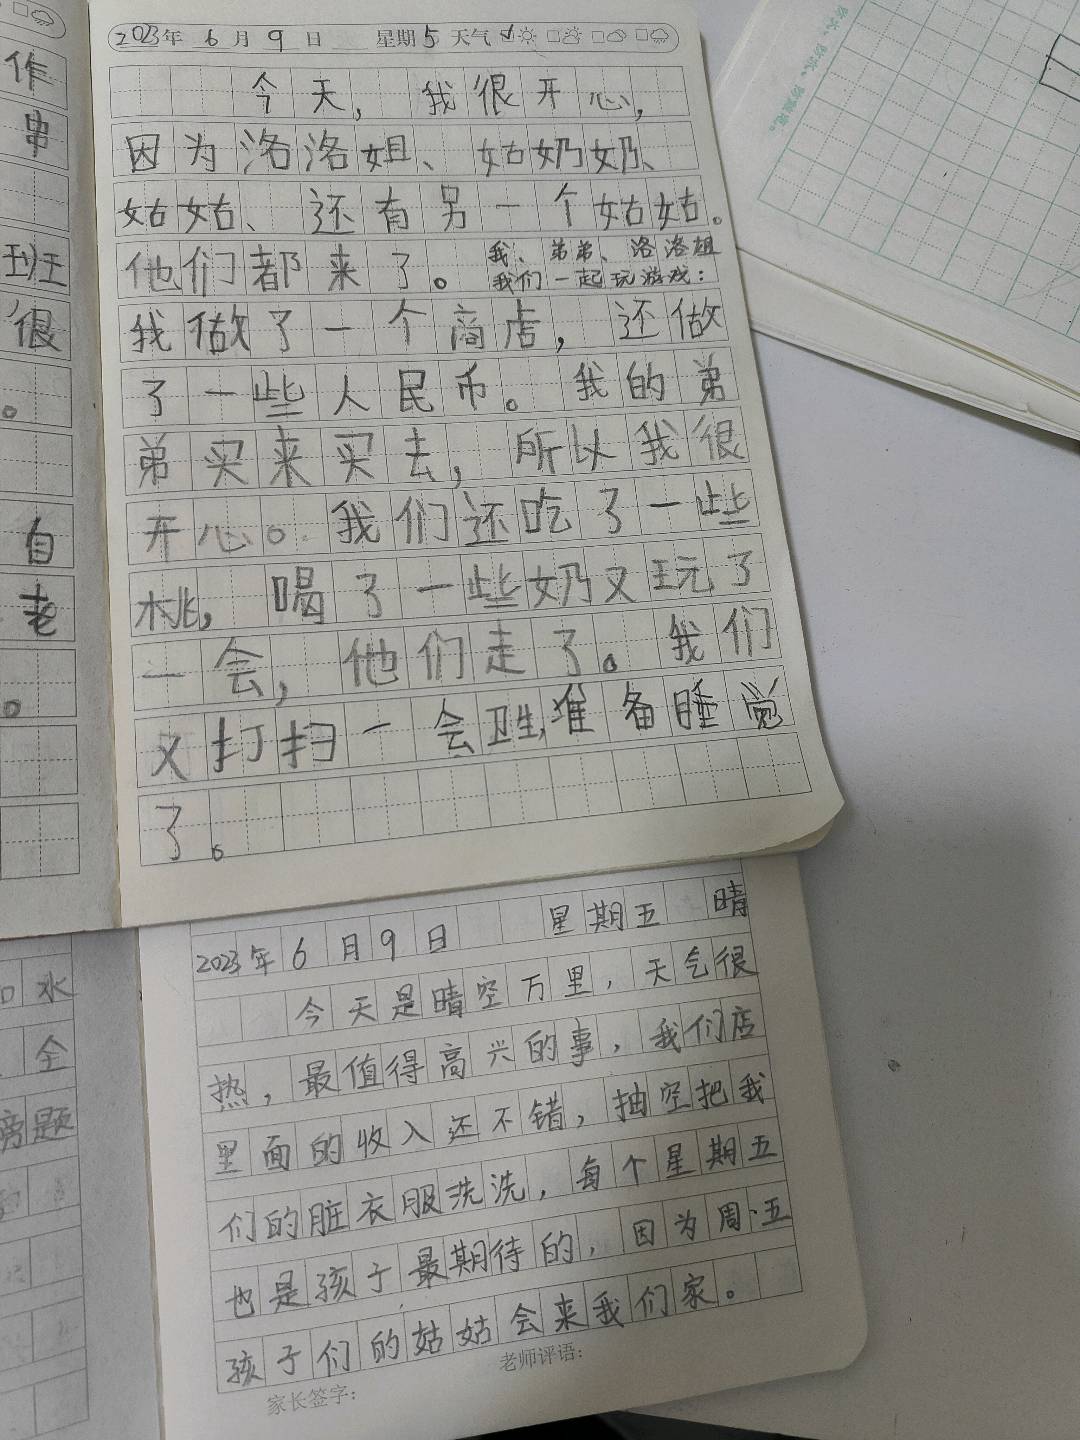 2023年 6 月 9 日 星期5 天气
今天，我很开心，
因为洛洛姐、姑奶奶、
姑姑、还有另一个姑姑。
他们都来了。我、弟弟、洛洛姐
我们一起玩游戏：
我做了一个商店，还做
了一些人民币。我的弟
弟买来买去，所以我很
开心。我们还吃了一些
桃，喝了一些奶又玩了
一会，他们走了。我们
又打扫一会卫生,准备睡觉
了。
2023年6月9日 星期五 晴
今天是晴空万里，天气很
热，最值得高兴的事，我们店
里面的收入还不错，抽空把我
们的脏衣服洗洗，每个星期五
也是孩子最期待的，因为周五
孩子们的姑姑会来我们家。
家长签字： 老师评语：
作
串
班
很
。
自
老
。
水
全
题